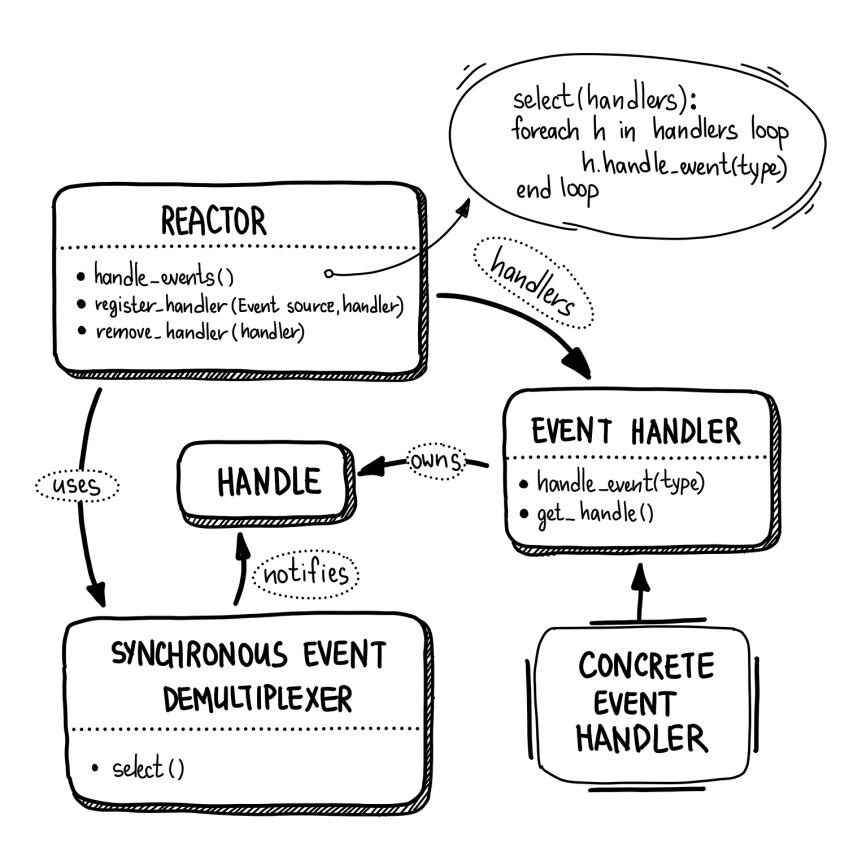 select(handlers):
foreach h in handlers loop
h.handle_event(type)
end loop
REACTOR
• handle_events()
• register_handler(Event source, handler)
• remove_handler(handler)
handlers
EVENT HANDLER
• handle_event(type)
• get_handle()
owns
HANDLE
uses
notifies
SYNCHRONOUS EVENT
DEMULTIPLEXER
• select()
CONCRETE
EVENT
HANDLER